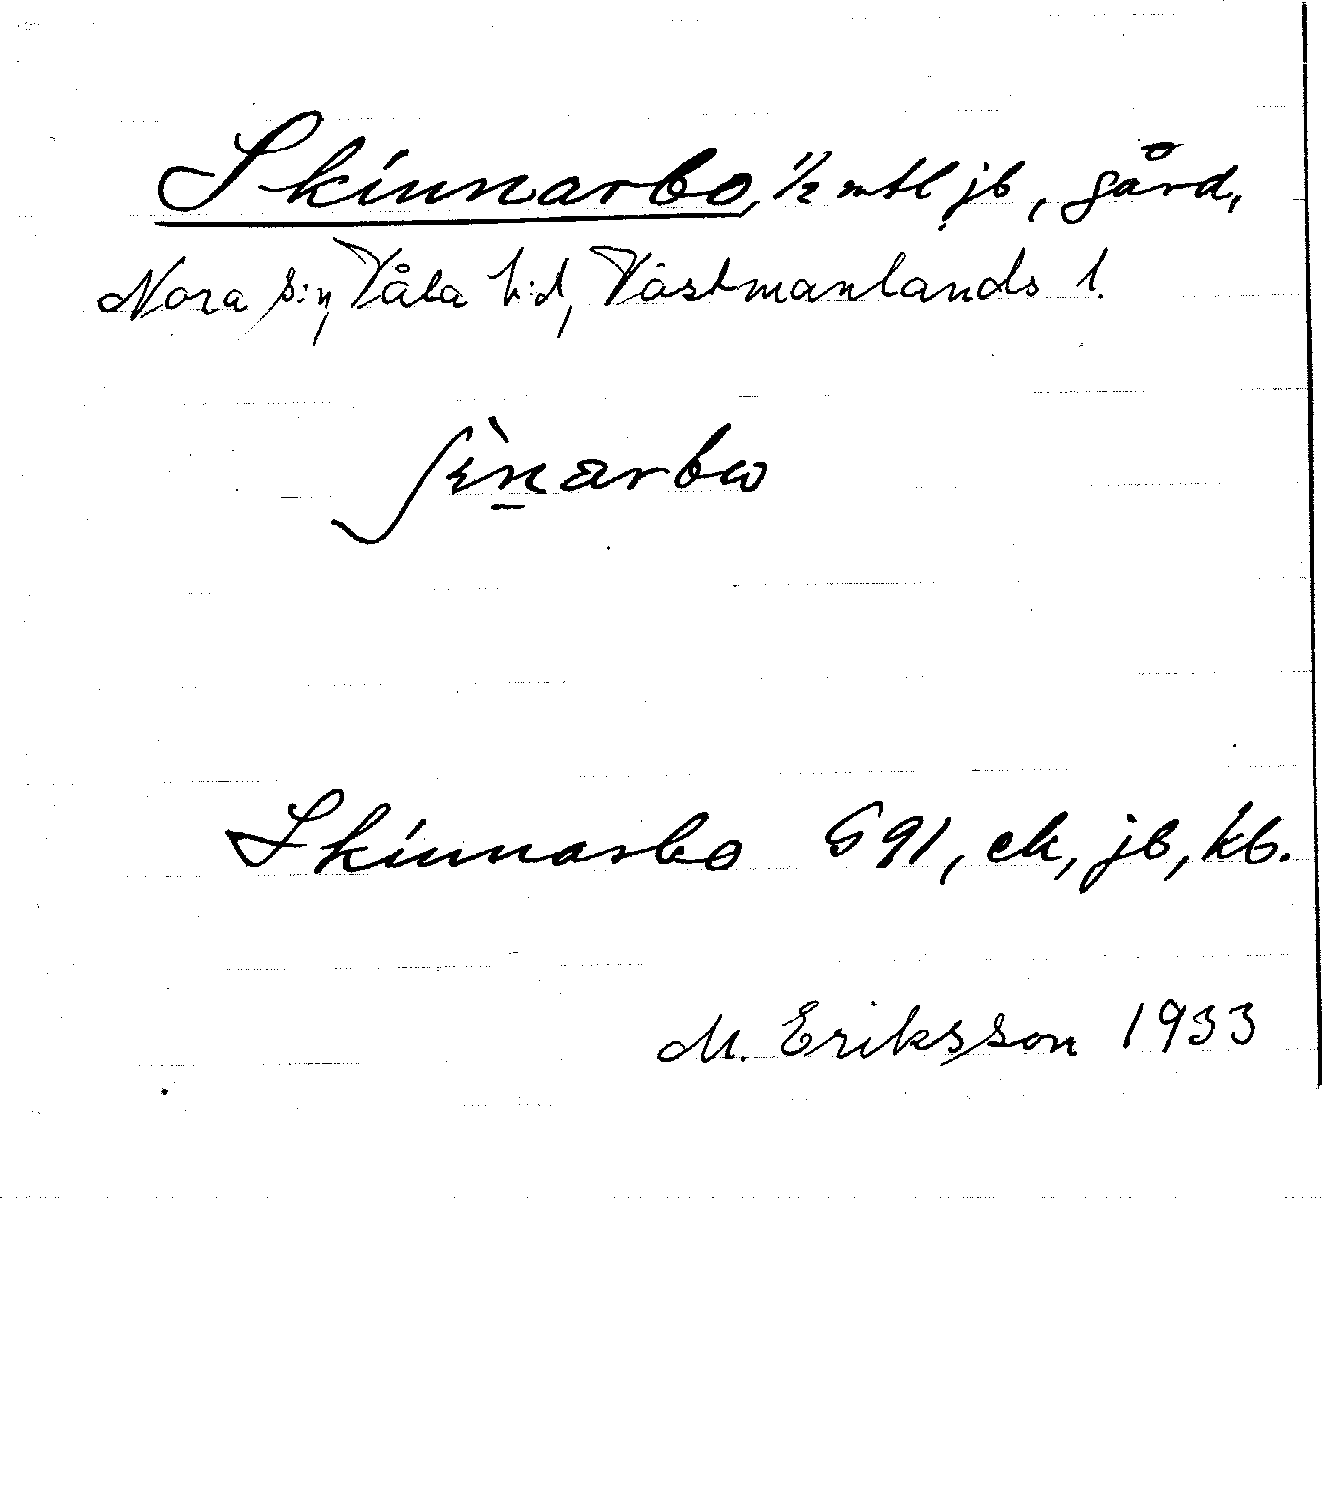 Skinnarbo, 1/2 mtl jb, gård,
Nora s:n, Våla h:d, Västmanlands l.
Skinnarbo G 91, ek, jb, kb.
M. Eriksson 1933